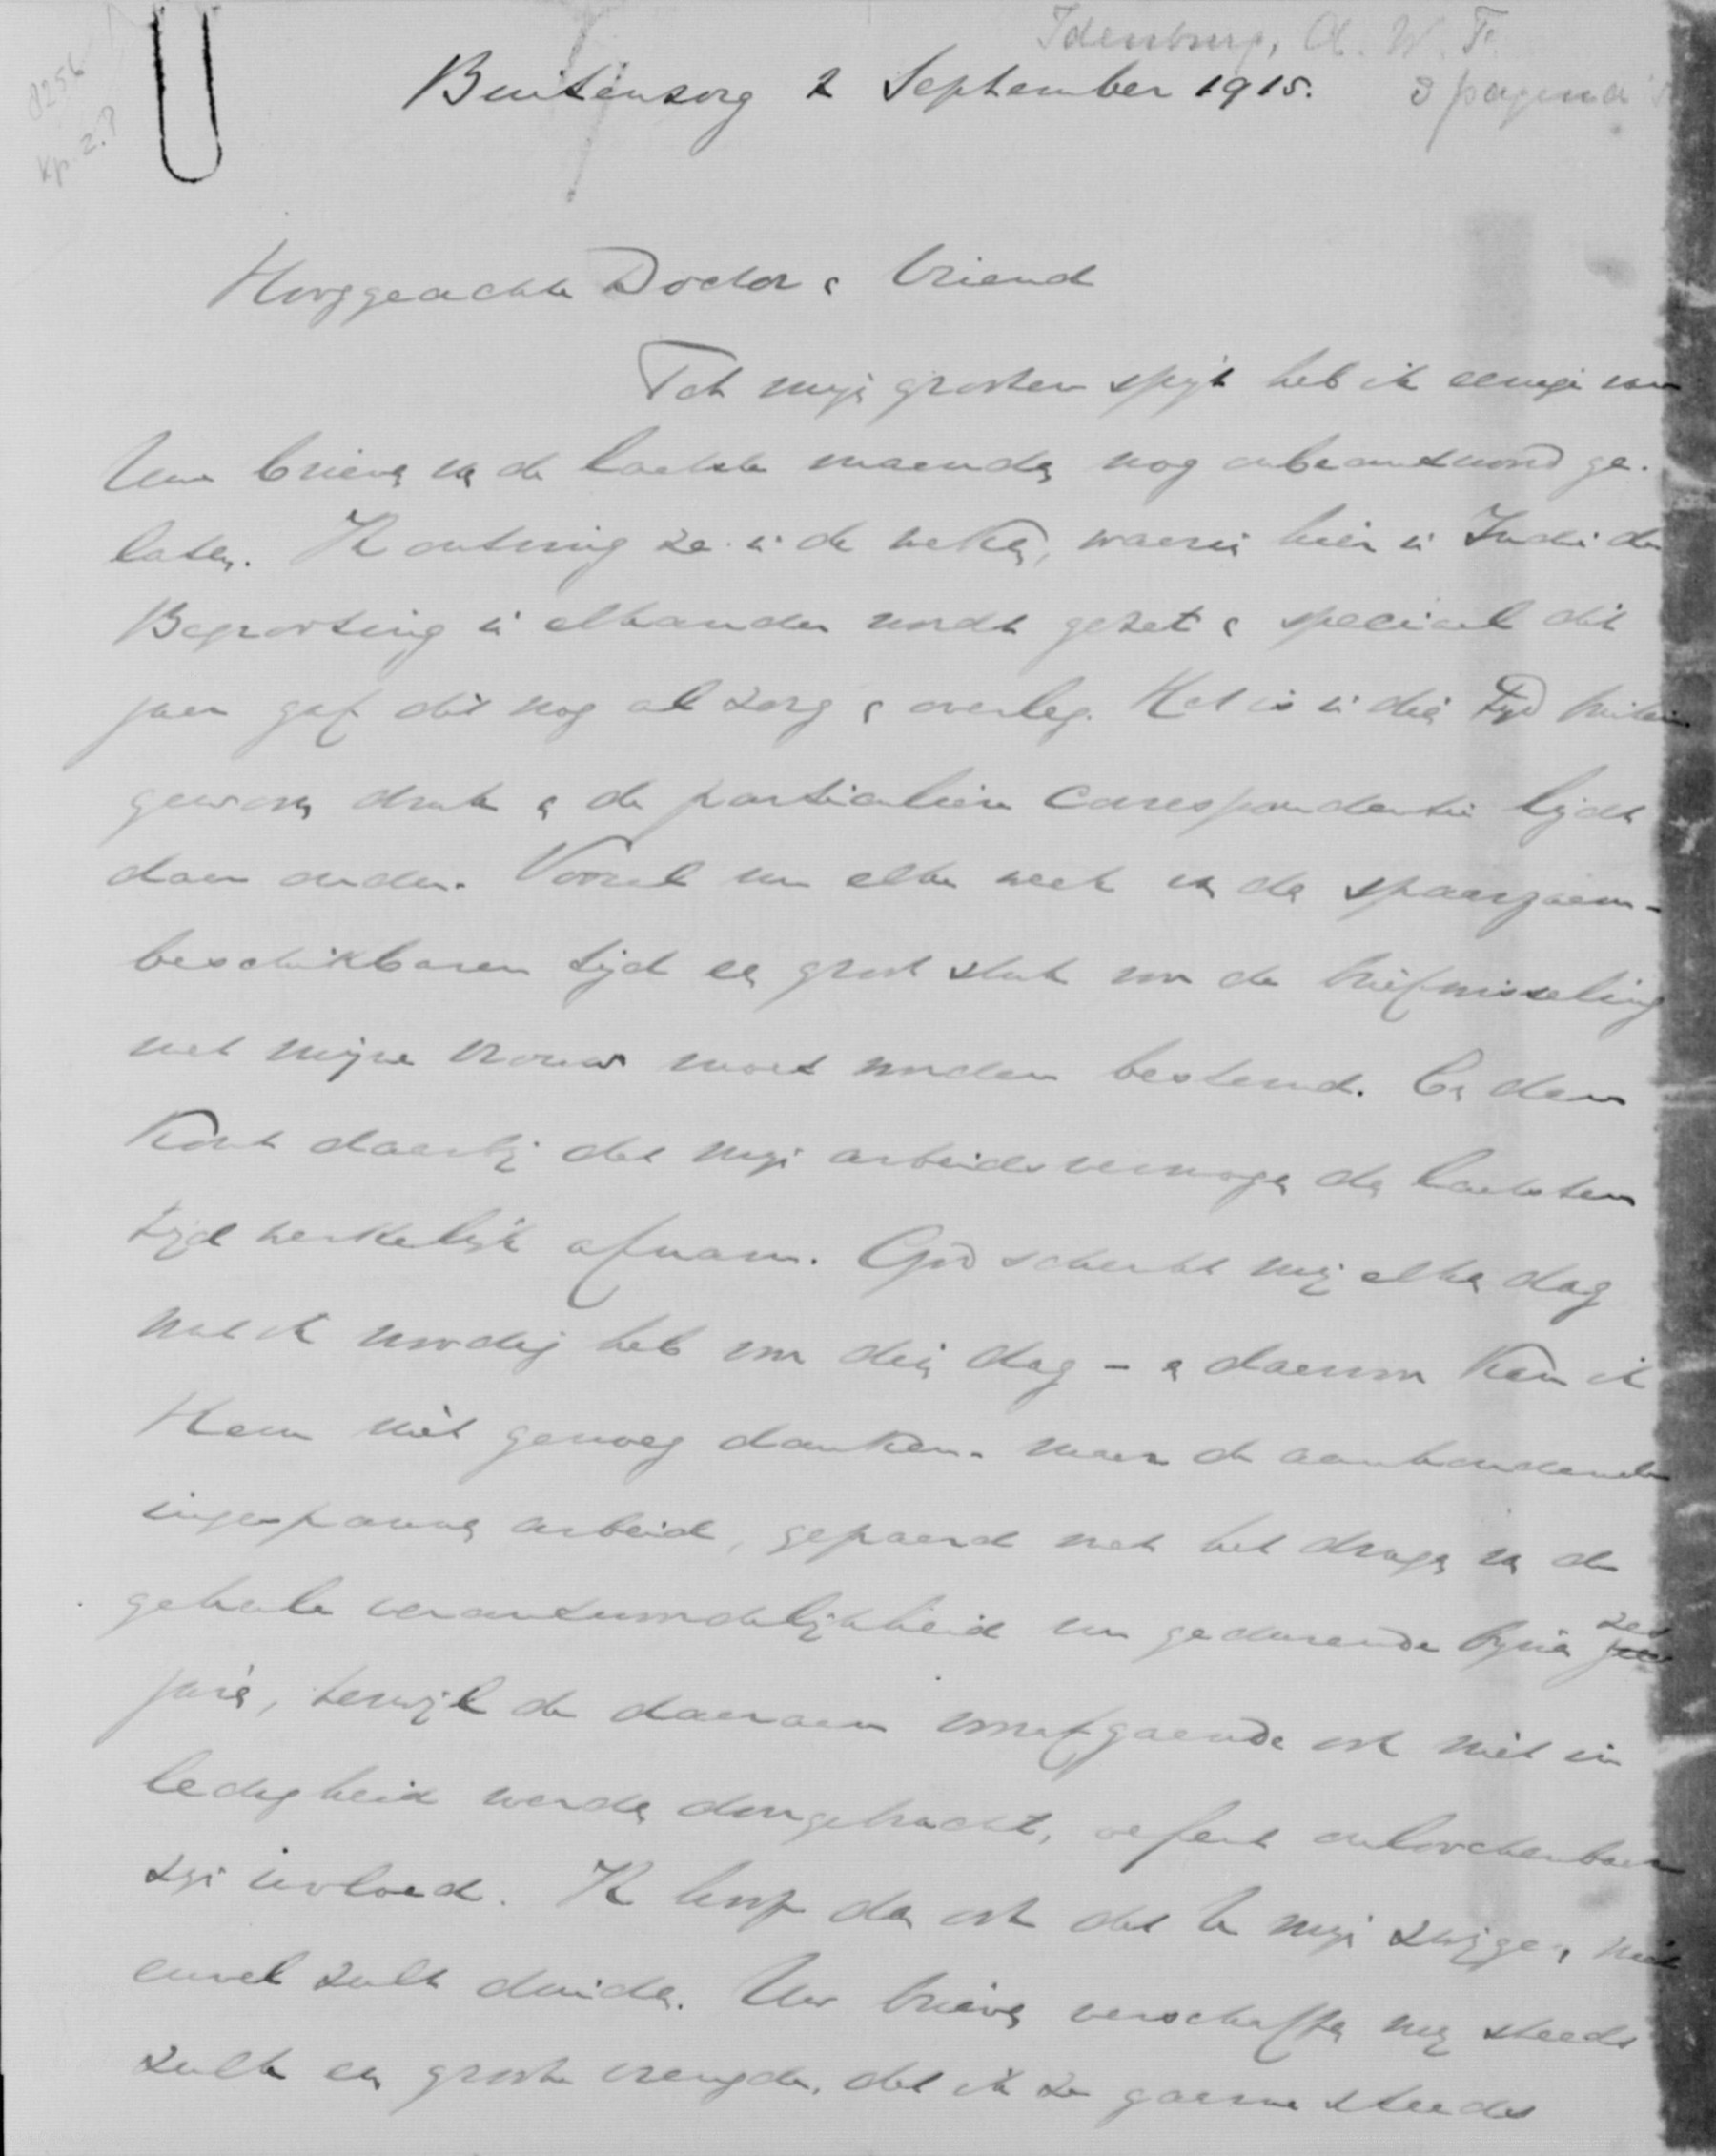 8256
Kp. 2.?
Idenburg, A. W. F.
3 pagina's
Buitenzorg 2 September 1915.
Hooggeachte Doctor & Vriend
Tot mijn grooten spijt heb ik eenige van
Uwe brieven in de laatste maanden nog onbeantwoord ge-
laten. Ik ontving ze in de weken, waarin hier in Indië de
Begrooting in elkander wordt gezet & speciaal dit
jaar gaf dit nog al zorg & overleg. Het is in dien tijd buiten-
gewoon druk & de particuliere correspondentie lijdt
daar onder. Vooral nu elke week van de spaarzaam-
beschikbaren tijd een groot stuk voor de briefwisseling
met mijne vrouw moet worden besteed. En dan
komt daarbij dat mijn arbeidsvermogen den laatsten
tijd werkelijk afnam. God schenkt mij elken dag
wat ik noodig heb voor dien dag – & daarvoor kan ik
Hem niet genoeg danken. Maar de aanhoudende
ingespannen arbeid, gepaard met het dragen van de
geheele verantwoordelijkheid nu gedurende bijna zes
jaren, terwijl de daaraan voorafgaande ook niet in
ledigheid werden doorgebracht, oefent onloochenbaar
zijn invloed. Ik hoop dan ook dat U mijn zwijgen niet
euvel zult duiden. Uw brieven verschaffen mij steeds
zulk een groote vreugde, dat ik ze gaarne steeds